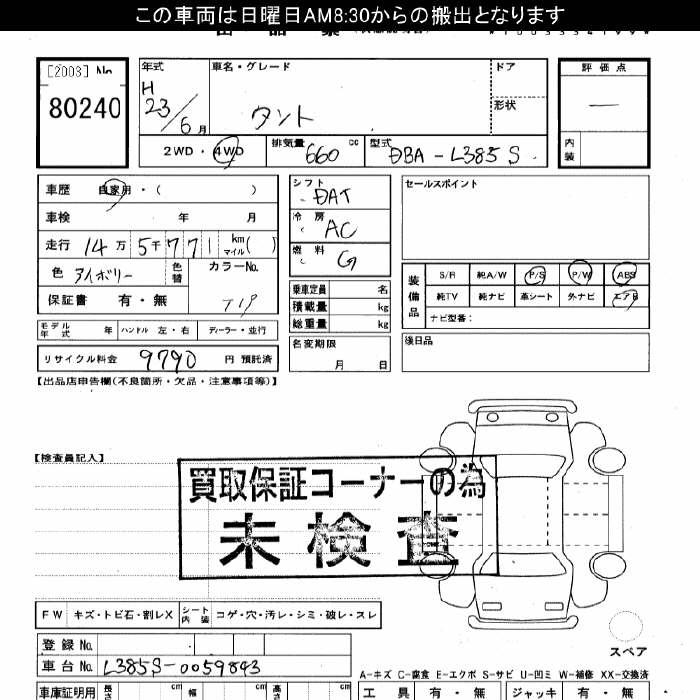 この車両は日曜日AM8:30からの搬出となります
[2003] No
80240
年式
H
23/6 月
車名・グレード
タント
ドア
形状
評価点
—
内装
2WD・4WD
排気量 660 cc
型式 DBA-L385S
車歴 自家用・( )
車検 年 月
走行 14万5千771 km マイル( )
色 アイボリー 色替
カラーNo.
T19
保証書 有・無
シフト DAT
冷房 AC
燃料 G
乗車定員 名
積載量 kg
総重量 kg
セールスポイント
装備品
S/R 純A/W P/S P/W ABS
純TV 純ナビ 革シート 外ナビ エアB
ナビ型番:
モデル年式 年 ハンドル 左・右 ディーラー・並行
リサイクル料金 9790 円 預託済
名変期限
月 日
後日品
【出品店申告欄(不良箇所・欠品・注意事項等)】
【検査員記入】
買取保証コーナーの為
未検査
FW キズ・トビ石・割レX シート内装 コゲ・穴・汚レ・シミ・破レ・スレ
スペア
登録No.
車台No. L385S-0059843
A-キズ C-腐食 E-エクボ S-サビ U-凹ミ W-補修 XX-交換済
車庫証明用 長さ cm 幅 cm 高さ cm
工具 有・無 ジャッキ 有・無